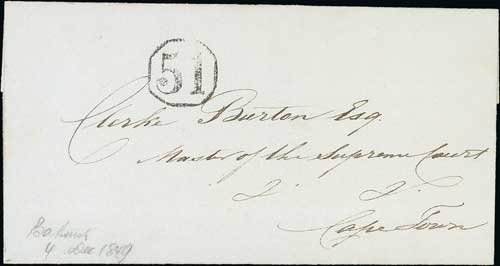 51
Clerke Burton Esq.
Master of the Supreme Court
Cape Town
4 Dec 1849